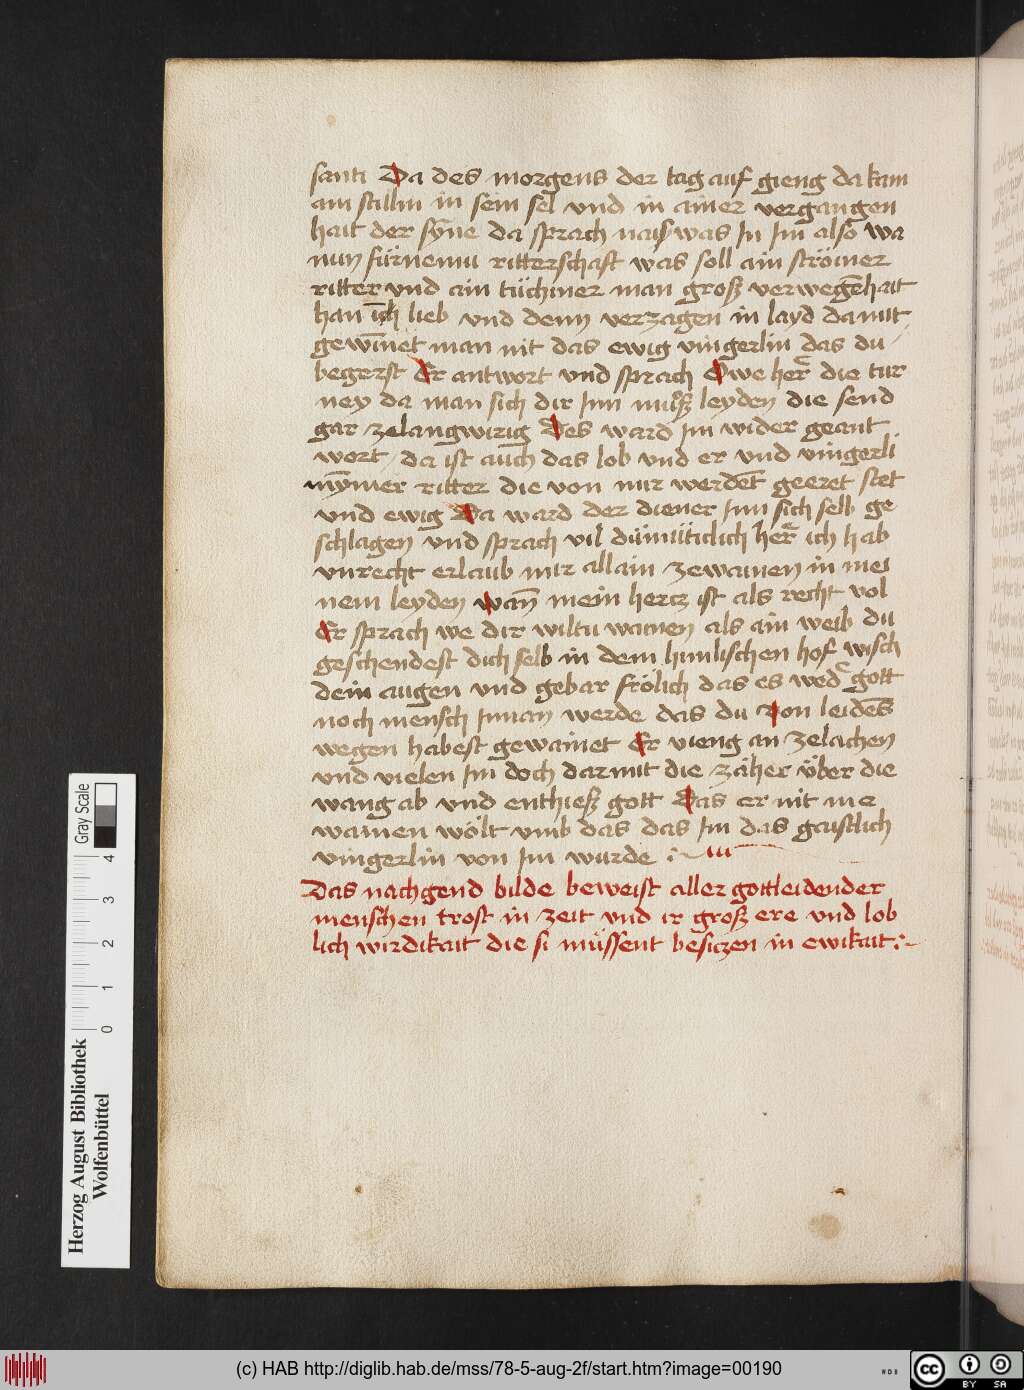 santi Da des morgens der tag auf gieng da kam
am stillin in sein sel vnd in ainer vergangen
hait der syne da sprach naiswas In Im also wa
nun fürnemu ritterschaft was soll ain ströiner
ritter vnd ain tüchiner man groß verwegēhait
han īch lieb vnd denn verzagen in layd da mit
gewīnet man nit das ewig vingerlin das du
begerst Er antwort vnd sprach Owe her die tur
ney da man sich dir Inn muͦß leyden die send
gar zelangwirig Des ward im wider geant
wort / da ist auch das lob vnd er vnd vingerli
mȳner ritter die von mir werdēt geeret stet
vnd ewig Da ward der diener Inn sich selb ge
schlagen vnd sprach vil dümüticlich her ich hab
vnrecht erlaub mir allain zewainen in mei
nem leyden wan̄ mein hercz ist als recht vol
Er sprach we dir wiltu wainen als ain weib du
geschendest dich selb in dem himlischen hof wisch
dein augen vnd gebar frölich das es wed' gott
noch mensch Innan werde das du von leidēs
wegen habest gewainet Er vieng an zelachen
vnd vielen Im doch darmit die zäher über die
wang ab vnd enthieß gott Das er nit me
wainen wölt vmb das das Im das gaistlich
vingerlin von Im wurde :~
Das nachgend bilde beweist aller gottleidender
menschen trost in zeit vnd ir groß ere vnd lob
lich wirdikait die si müssent besiczen in ewikait :~
Herzog August Bibliothek
Wolfenbüttel
0 1 2 3 4
Gray Scale
(c) HAB http://diglib.hab.de/mss/78-5-aug-2f/start.htm?image=00190
cc BY SA